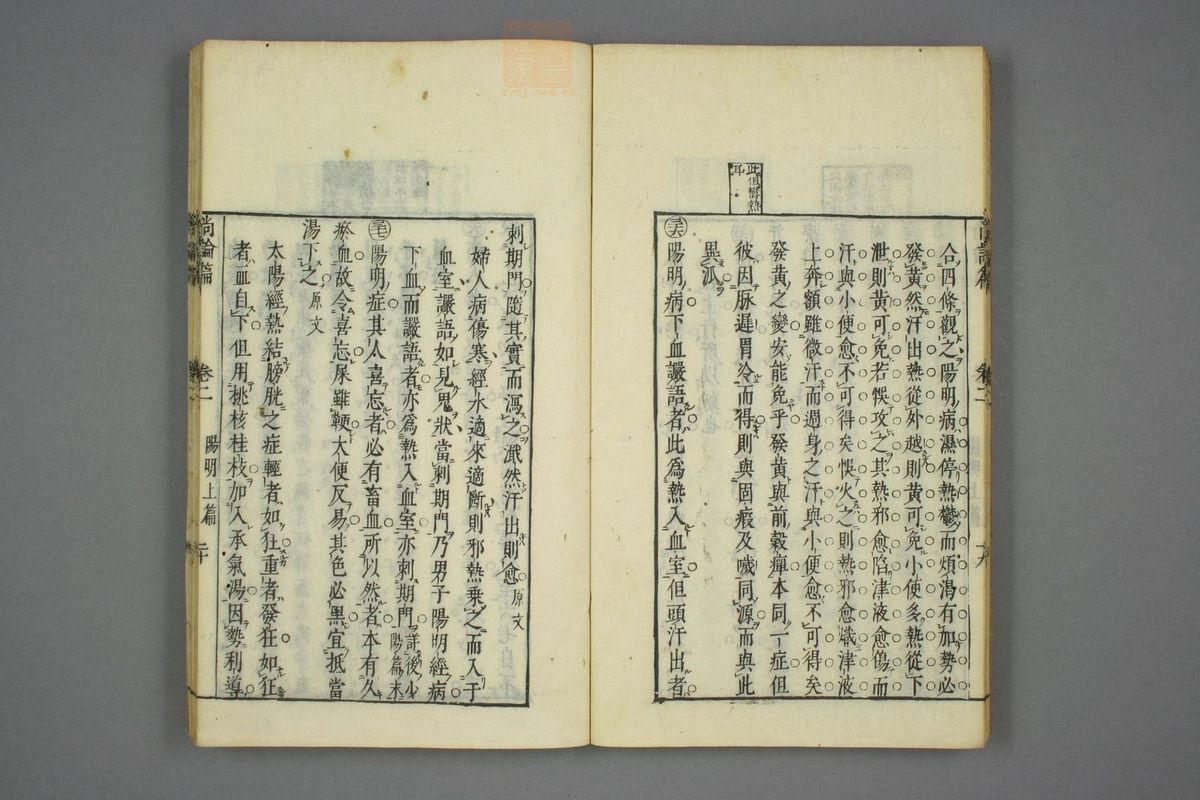 合四條觀之陽明病濕停熱鬱而煩渴有加勢必
發黃然汗出熱從外越則黃可免小便多熱從下
泄則黃可免若悞攻之其熱邪愈陷津液愈傷而
汗與小便愈不可得矣悞火之則熱邪愈熾津液
上奔額雖微汗而週身之汗與小便愈不可得矣
發黃之變安能免乎發黃與前穀癉本同一症但
彼因脉遲胃冷而得則與固瘕及噦同源而與此
異派
陽明病下血讝語者此爲熱入血室但頭汗出者
此但鬱熱
耳
尚論篇 卷二
刺期門隨其實而瀉之濈然汗出則愈原文
婦人病傷寒經水適來適斷則邪熱乗之而入于
血室讝語如見鬼狀當刺期門乃男子陽明經病
下血而讝語者亦爲熱入血室亦刺期門詳後少陽篇末
陽明症其人喜忘者必有畜血所以然者本有久
瘀血故令喜忘屎雖鞕大便反易其色必黑宜抵當
湯下之原文
太陽經熱結膀胱之症輕者如狂重者發狂如狂
者血自下但用桃核桂枝加入承氣湯因勢利導
尚論篇 卷二 陽明上篇 二十